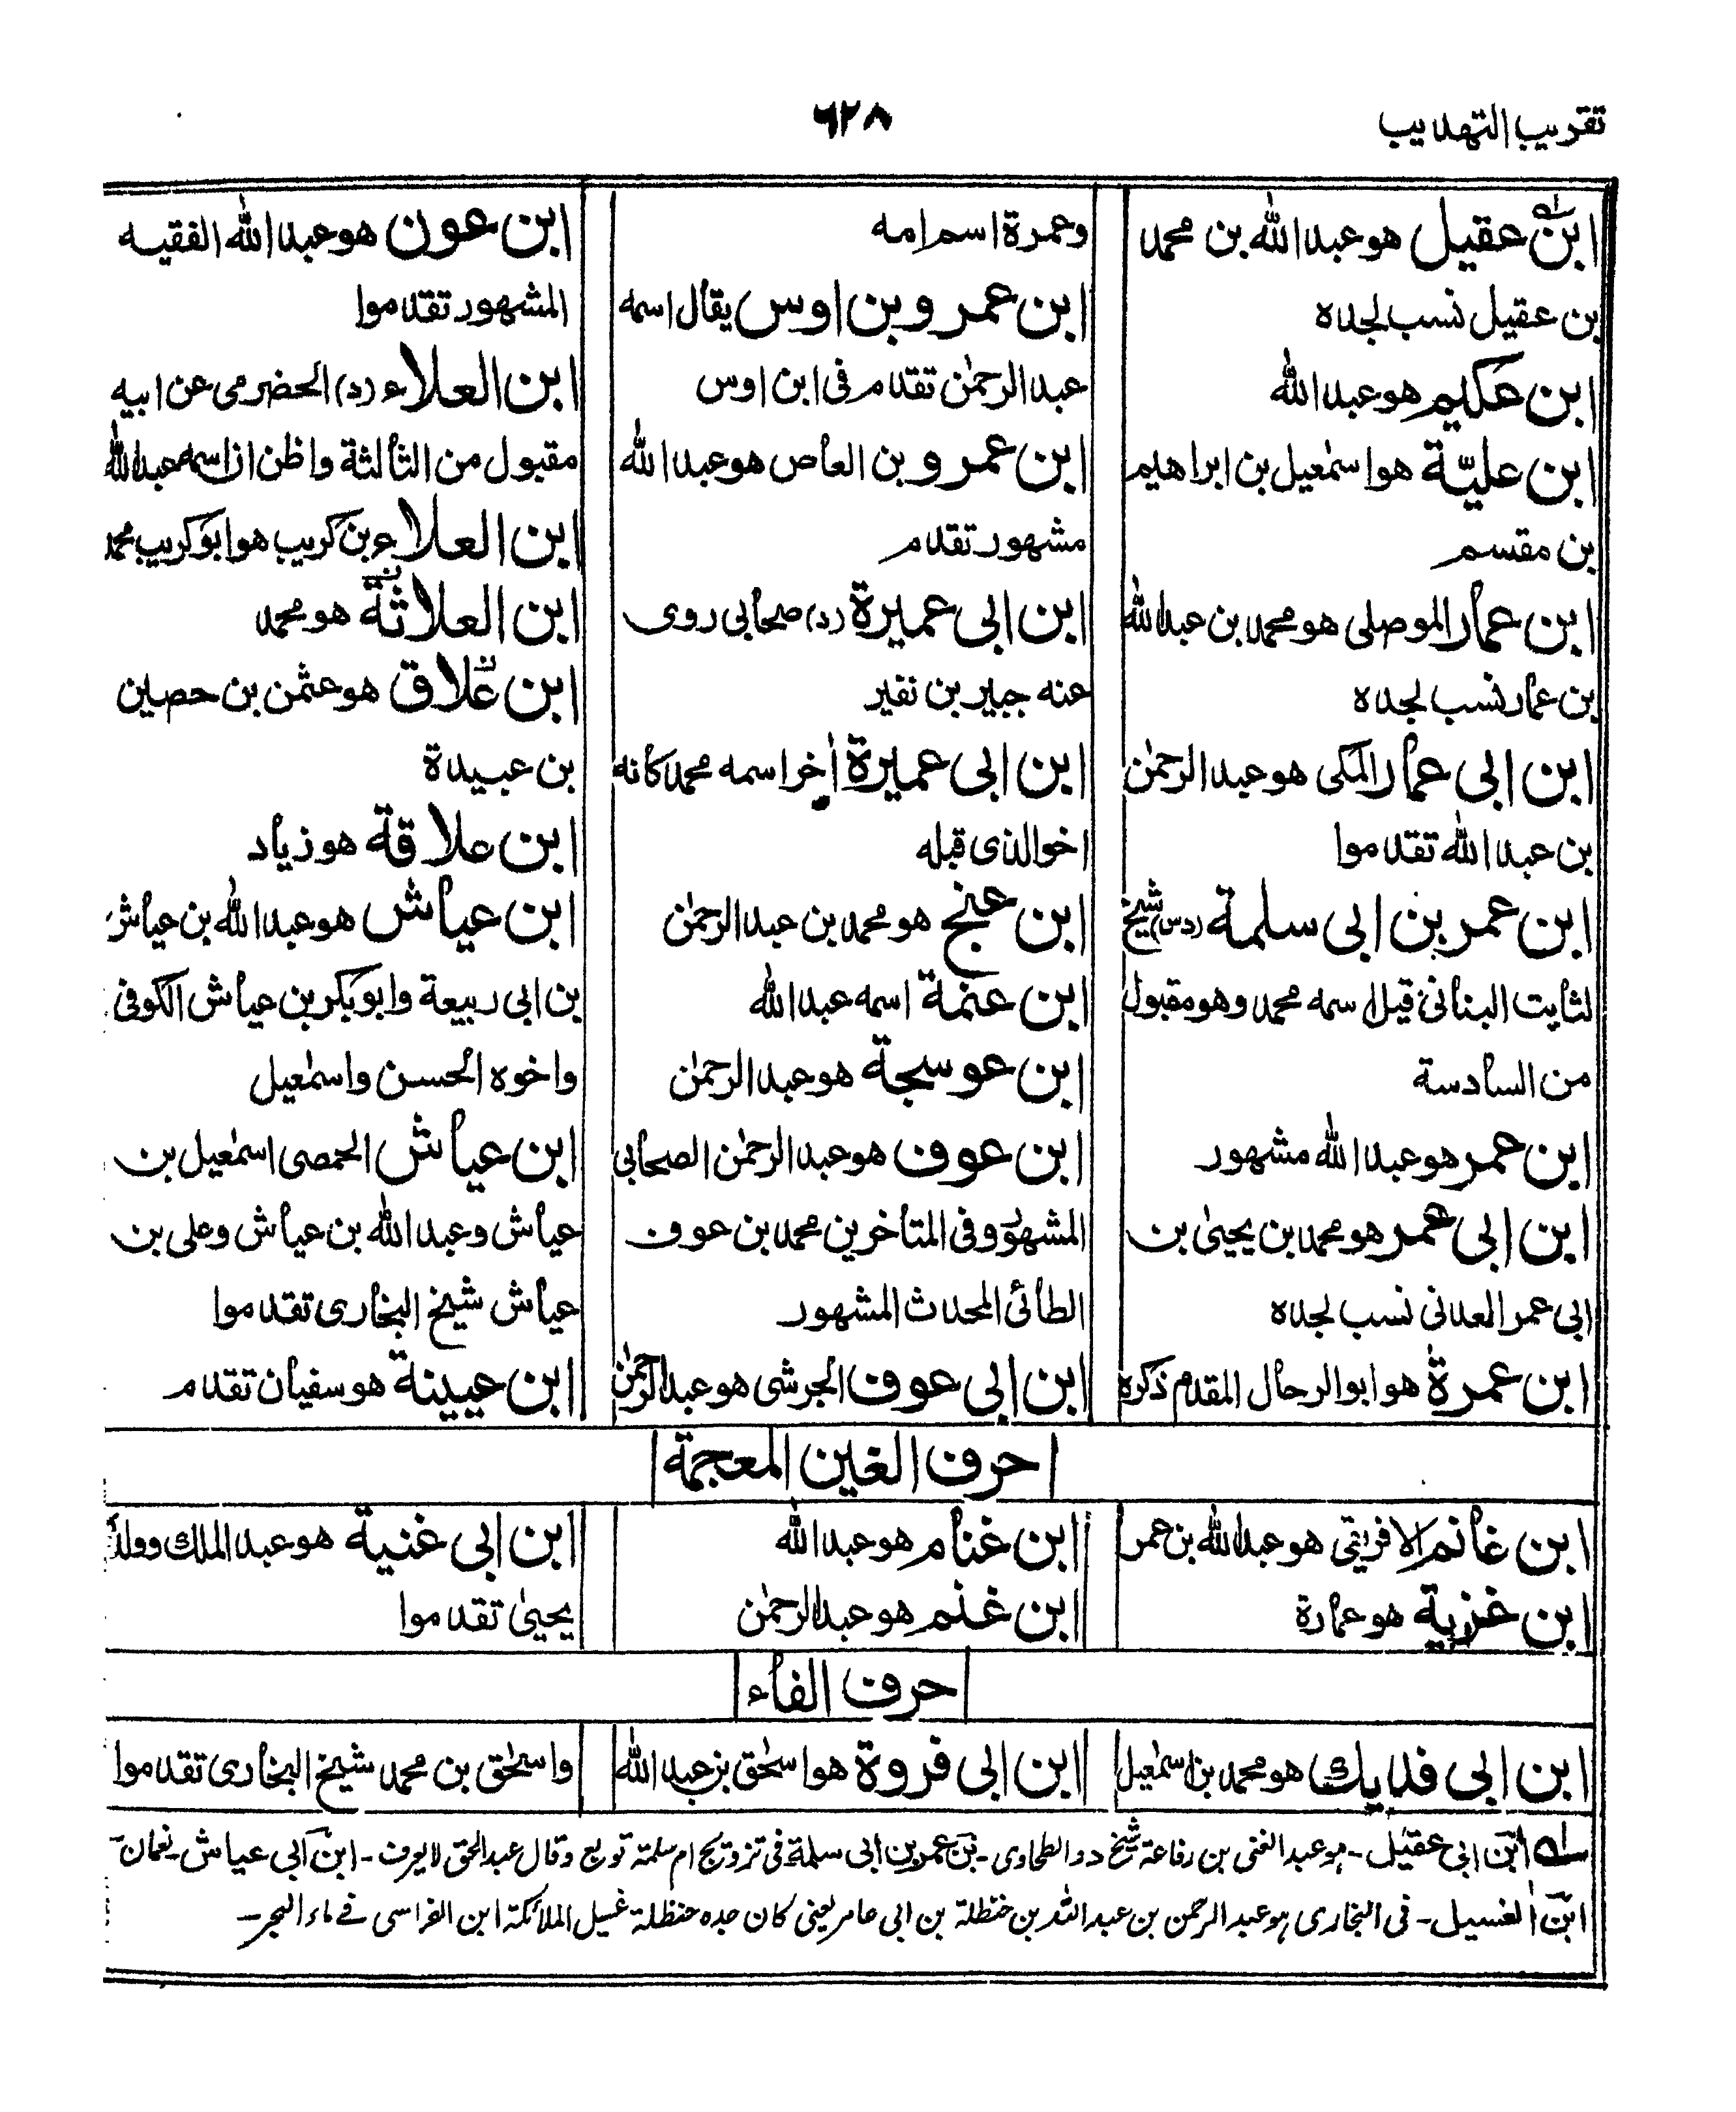 تقريب التهذيب
٦٢٨
ابن عقيل هو عبد الله بن محمد
بن عقيل نسب لجده
ابن عكيم هو عبد الله
ابن عليّة هو اسمٰعيل بن ابراهيم
بن مقسم
ابن عمار الموصلى هو محمد بن عبد الله
بن عمار نسب لجده
ابن ابى عمار المكى هو عبد الرحمٰن
بن عبد الله تقدموا
ابن عمر بن ابى سلمة (دس) شيخ
لثابت البنانى قيل اسمه محمد وهو مقبول
من السادسة
ابن عمر هو عبد الله مشهور
ابن ابى عمر هو محمد بن يحيىٰ بن
ابى عمر العدنى نسب لجده
ابن عمرة هو ابو الرحال المقدم ذكره
وعمرة اسم امه
ابن عمرو بن اوس يقال اسمه
عبد الرحمٰن تقدم فى ابن اوس
ابن عمرو بن العاص هو عبد الله
مشهور تقدم
ابن ابى عميرة (د) صحابى روى
عنه جبير بن نفير
ابن ابى عميرة اٰخر اسمه محمد كانه
اخو الذى قبله
ابن عنج هو محمد بن عبد الرحمٰن
ابن عنمة اسمه عبد الله
ابن عوسجة هو عبد الرحمٰن
ابن عوف هو عبد الرحمٰن الصحابى
المشهور وفى المتأخرين محمد بن عوف
الطائى المحدث المشهور
ابن ابى عوف الجرشى هو عبد الرحمٰن
ابن عون هو عبد الله الفقيه
المشهور تقدموا
ابن العلاء (د) الحضرمى عن ابيه
مقبول من الثالثة واظن ان اسمه عبد الله
ابن العلاء بن كريب هو ابو كريب محمد
ابن العلاثة هو محمد
ابن علاق هو عثمٰن بن حصين
بن عبيدة
ابن علاقة هو زياد
ابن عياش هو عبد الله بن عياش
بن ابى ربيعة وابو بكر بن عياش الكوفى
واخوه الحسن واسمٰعيل
ابن عياش الحمصى اسمٰعيل بن
عياش وعبد الله بن عياش وعلى بن
عياش شيخ البخارى تقدموا
ابن عيينة هو سفيان تقدم
حرف الغين المعجمة
ابن غانم الافريقى هو عبد الله بن عمر
ابن غزية هو عمارة
ابن غنام هو عبد الله
ابن غنم هو عبد الرحمٰن
ابن ابى غنية هو عبد الملك وولده
يحيىٰ تقدموا
حرف الفاء
ابن ابى فديك هو محمد بن اسمٰعيل
ابن ابى فروة هو اسحٰق بن عبد الله
واسحٰق بن محمد شيخ البخارى تقدموا
له ابن ابى عقيل ـ هو عبد الغنى بن رفاعة شيخ د والطحاوى ـ بن عمر بن ابى سلمة فى تزويج ام سلمة توبع وقال عبد الحق لا يعرف ـ ابن ابى عياش ـ نعمان
ابن الغسيل ـ فى البخارى هو عبد الرحمن بن عبد الله بن حنظلة بن ابى عامر يعنى كان جده حنظلة غسيل الملائكة ابن الفراسى فى ماء البحر ـ